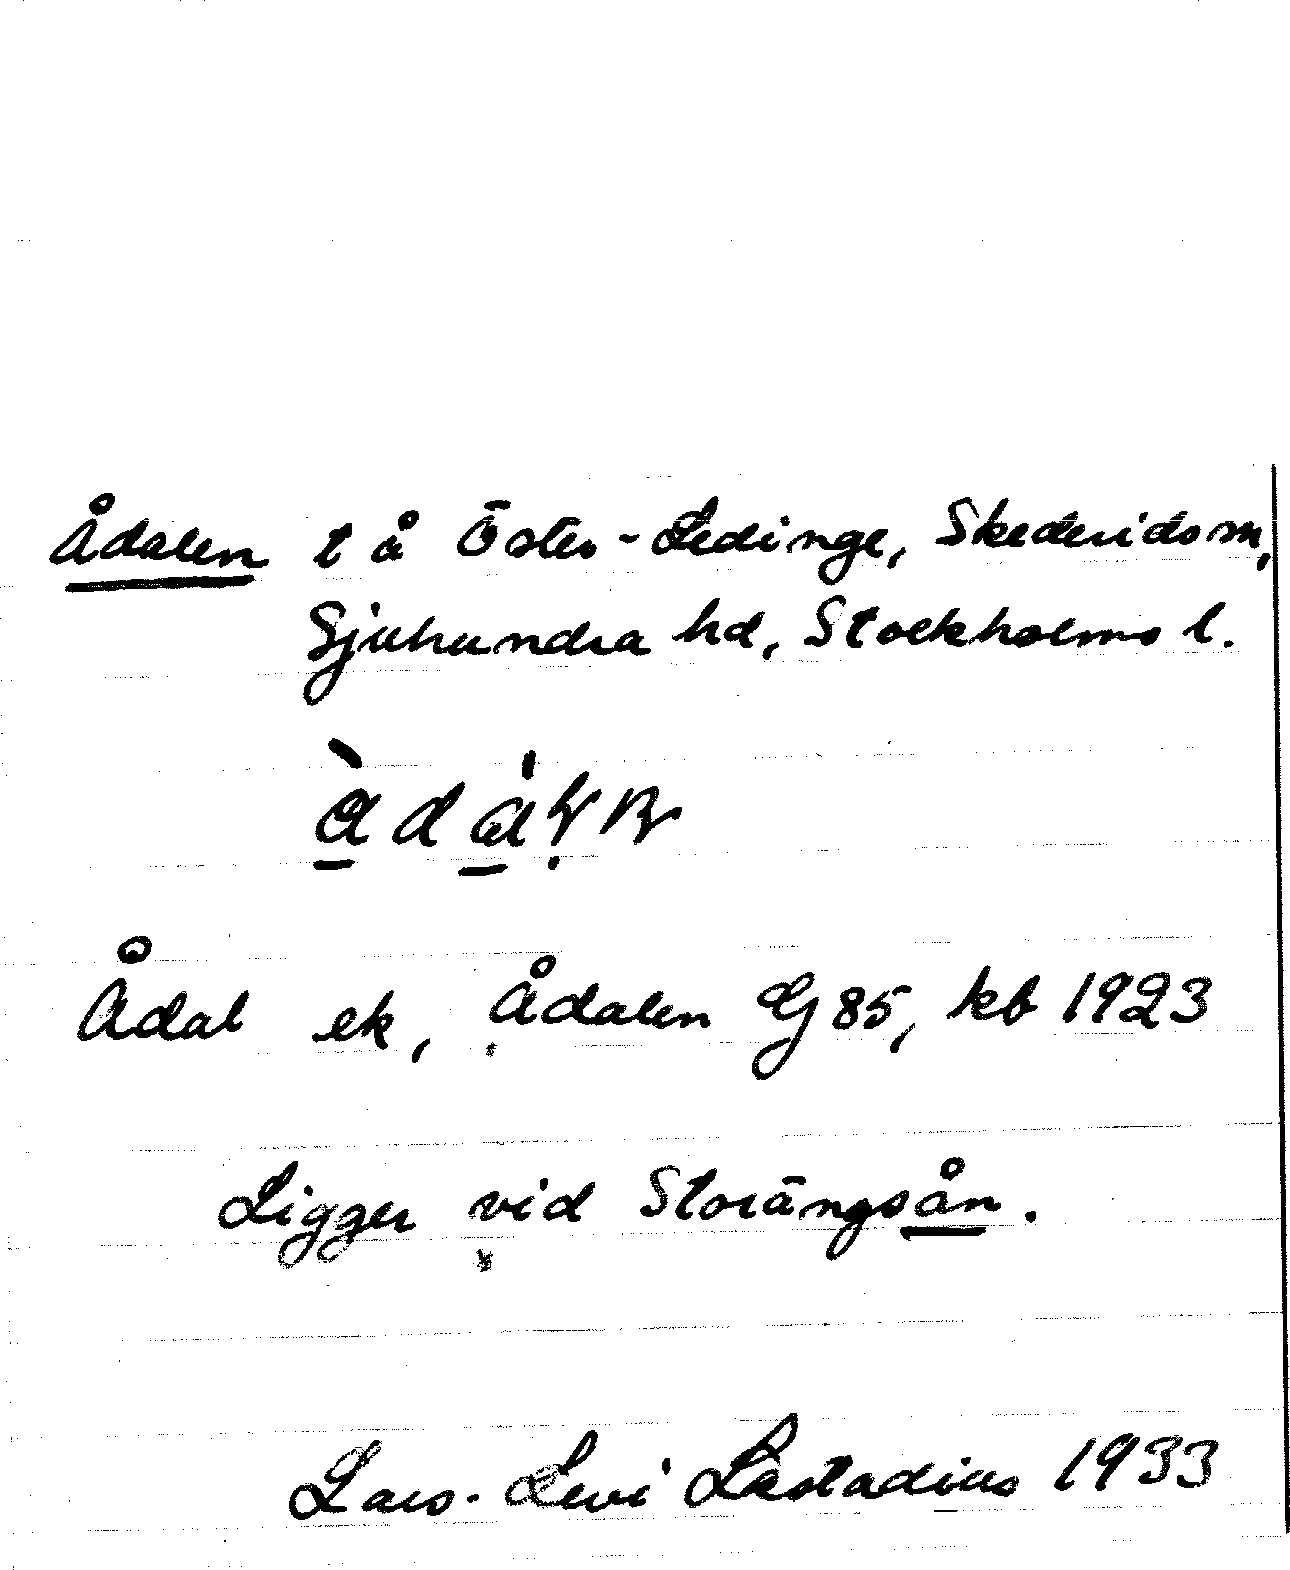 Ådalen t å Öster-Ledinge, Skederids sn,
Sjuhundra hd, Stockholms l.
Ådal ek, Ådalen GJ 85, kb 1923
Ligger vid Storängsån.
Lars-Levi Læstadius 1933